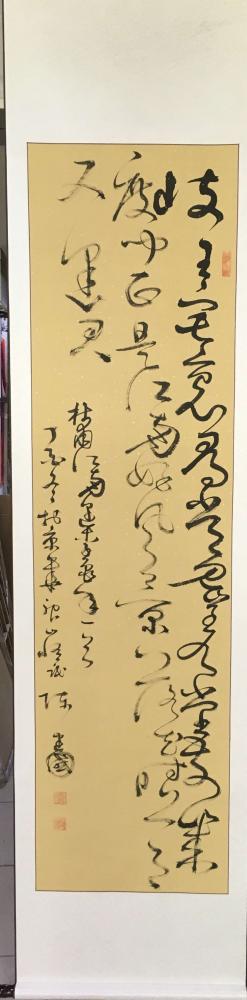 岐王宅里寻常见崔九堂前几
度闻正是江南好风景落花时节
又逢君
杜甫江南逢李龟年一首
丁酉冬 京华 陈